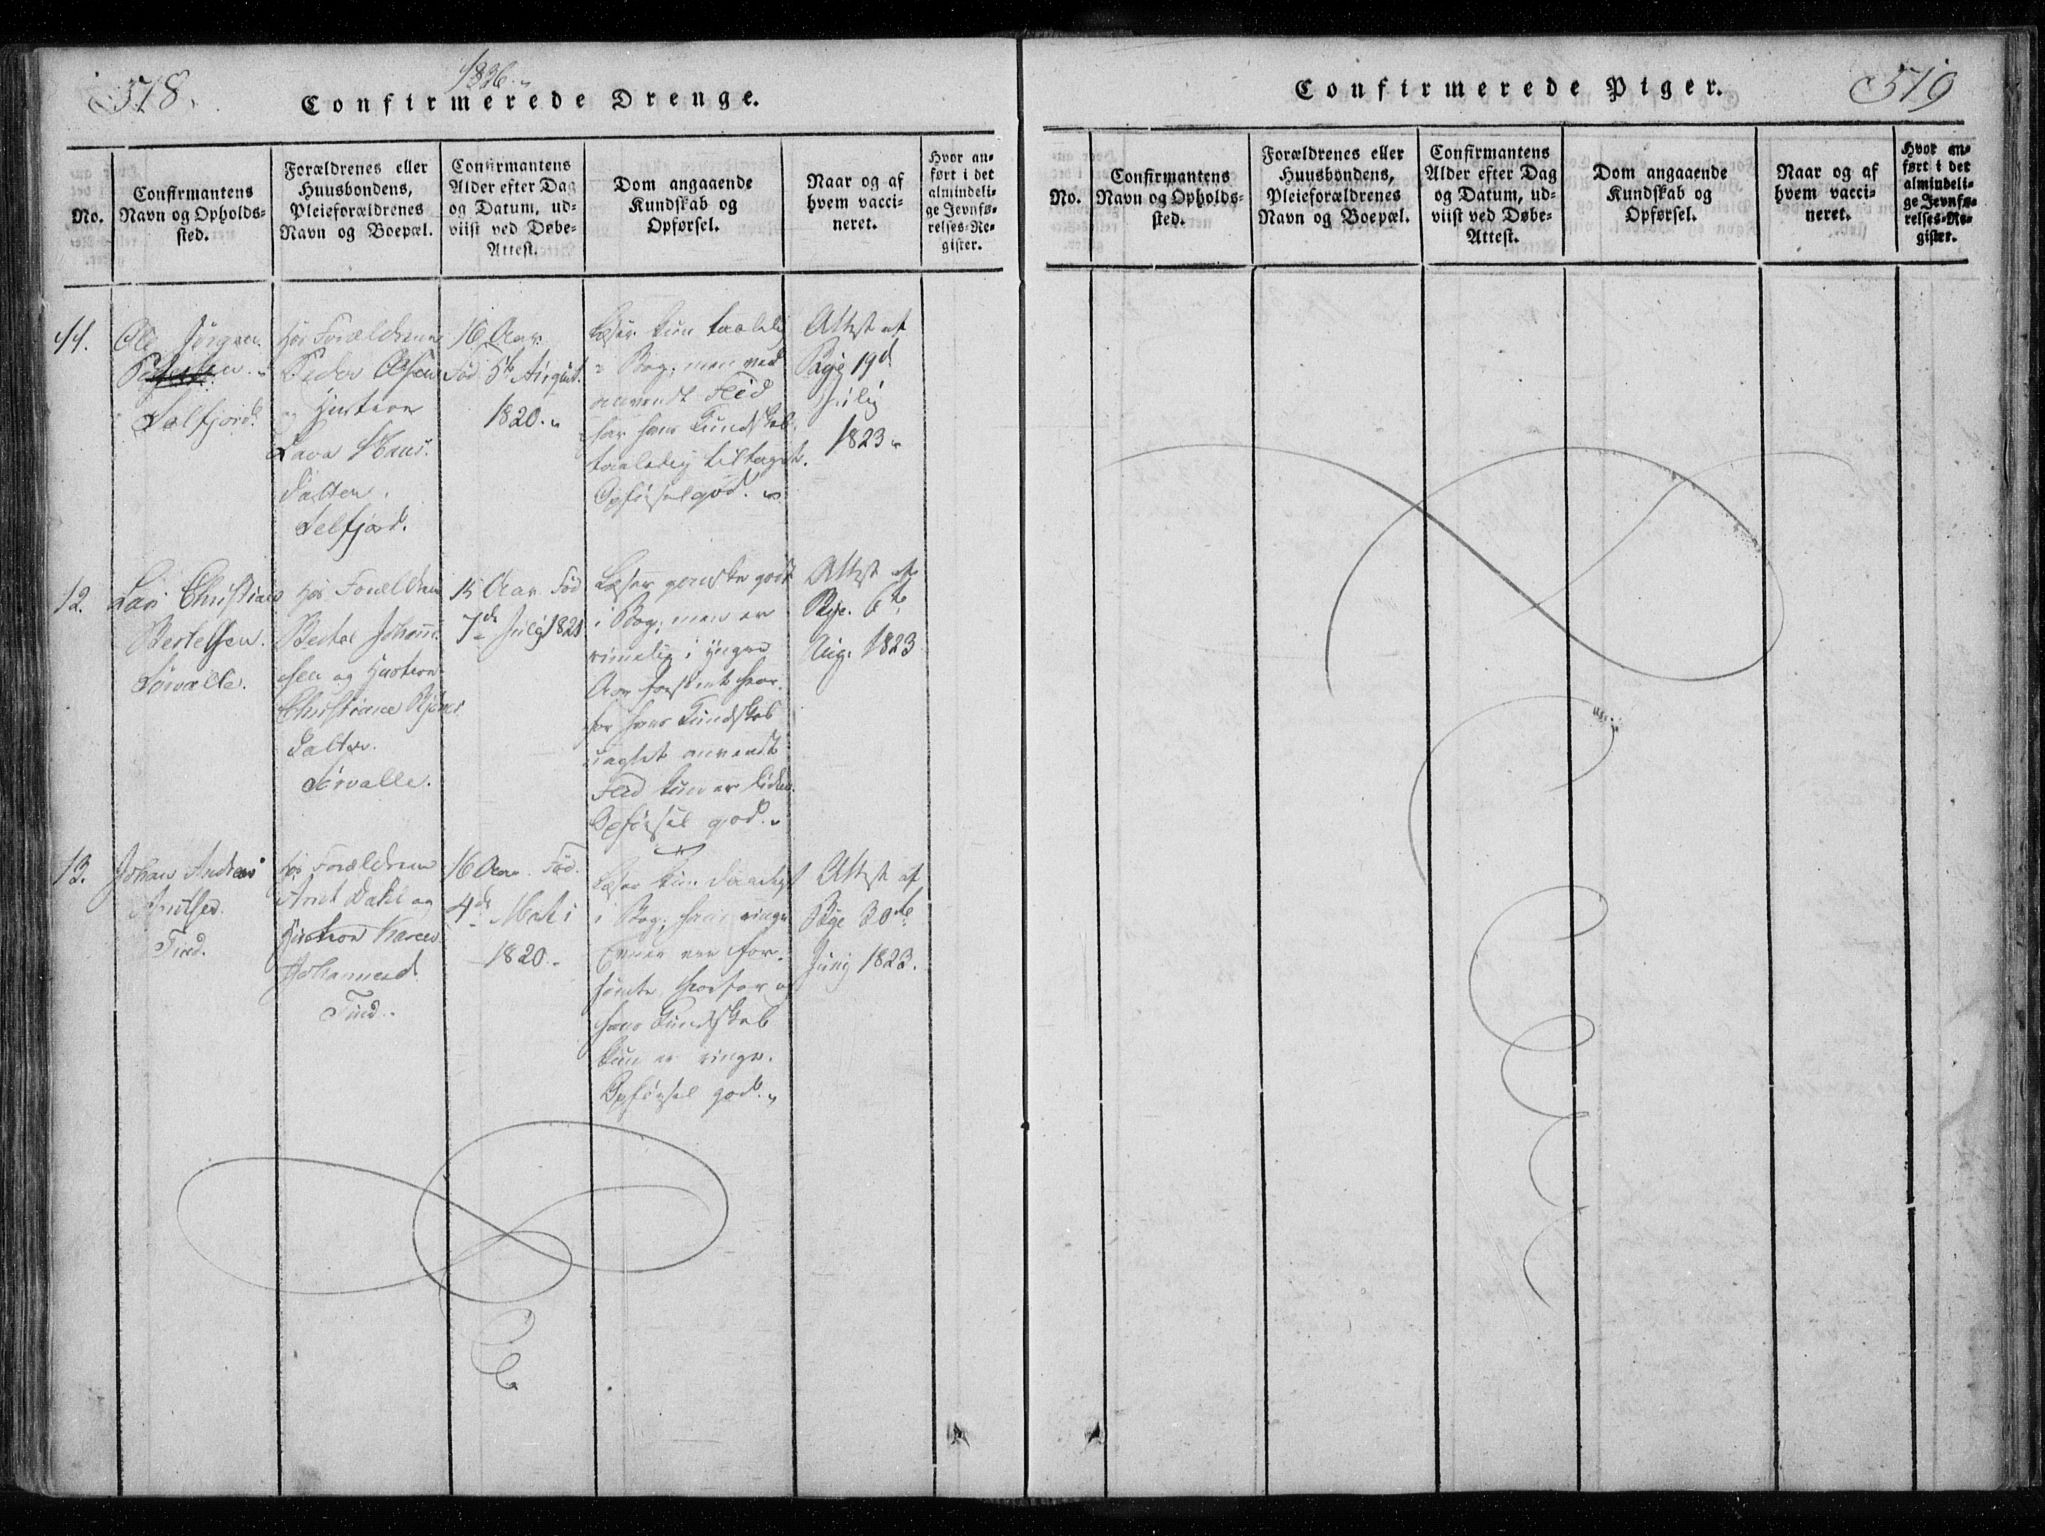 518.
1836.
Confirmerede Drenge.
No.
Confirmantens
Navn og Opholds-
sted.
Forældrenes eller
Huusbondens,
Pleieforældrenes
Navn og Boepæl.
Confirmantens
Alder efter Dag
og Datum, ud-
viist ved Døbe-
Attest.
Dom angaaende
Kundskab og
Opførsel.
Naar og af
hvem vacci-
neret.
Hvor an-
ført i det
almindeli-
ge Jevnfø-
relses-Re-
gister.
11.
Ole Jørgen
Salfjord.
Hos Forældrene
Peder Olsen
og Hustrue
Lava Hans-
datter.
Selfjord.
16 Aar.
Fød 5te August
1820.
Læser kun taalelig
i Bog; men ved
anvendt Flid
har hans Kundskab
taalelig tiltaget.
Opførsel god.
Attest af
Bye 19de
July
1823.
12.
Lars Christian
Bertelsen.
Sørvalle.
Hos Forældrene
Bertel Johanne-
sen og Hustrue
Christiane
Datter.
Sørvalle.
15 Aar. Fød
7de July 1821
Læser ganske godt
i Bog; men er
rimelig i yngre
Aar forsømt hvor-
for hans Kundskab
uagtet anvendt
Flid kun er liden.
Opførsel god.
Attest af
Bye. 6te
Aug. 1823
13.
Johan Andreas
Arntsen.
Tind.
Hos Forældrene
Arnt Dahl og
Hustrue Karen
Johannesd.
Tind.
16 Aar. Fød.
4de
1820.
Læser kun daarligt
i Bog; hans ringe
Evner ere for-
sømte, hvorfor og
hans Kundskab
kun er ringe.
Opførsel god.
Attest af
Bye 30te
Juny 1823.
519
Confirmerede Piger.
No.
Confirmantens
Navn og Opholds-
sted.
Forældrenes eller
Huusbondens,
Pleieforældrenes
Navn og Boepæl.
Confirmantens
Alder efter Dag
og Datum, ud-
viist ved Døbe-
Attest.
Dom angaaende
Kundskab og
Opførsel.
Naar og af
hvem vacci-
neret.
Hvor an-
ført i det
almindeli-
ge Jevnfø-
relses-Re-
gister.